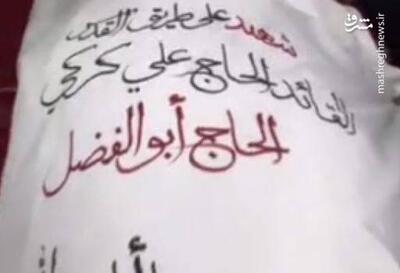 شهيد على طريق القدس
القائد الحاج علي كركي
الحاج أبو الفضل
مشرق
mashreghnews.ir